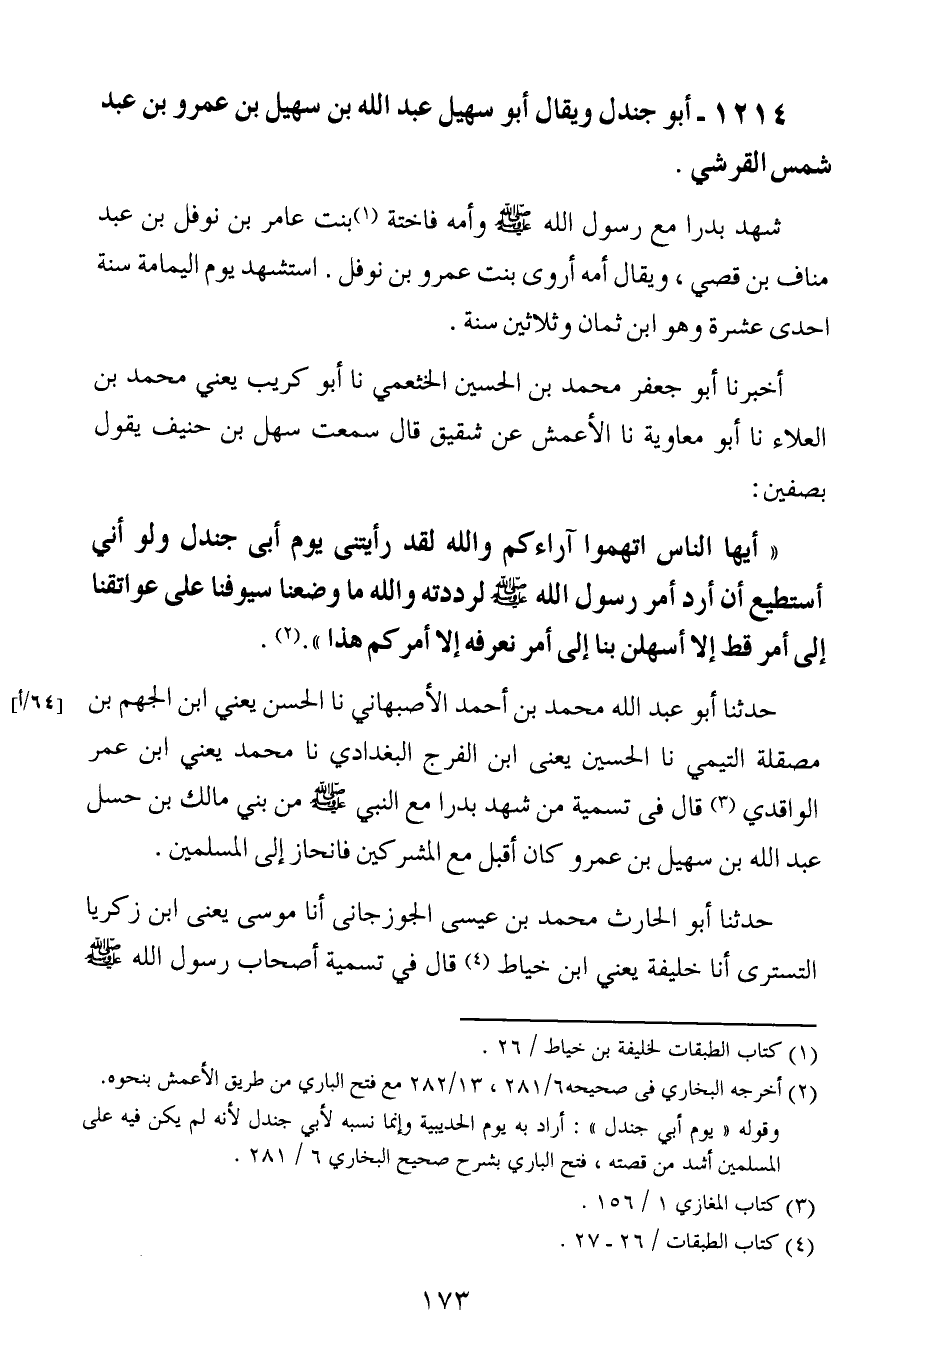 ١٢١٤ - أبو جندل ويقال أبو سهيل عبد الله بن سهيل بن عمرو بن عبد
شمس القرشي .
شهد بدرا مع رسول الله ﷺ وأمه فاختة (١) بنت عامر بن نوفل بن عبد
مناف بن قصي ، ويقال أمه أروى بنت عمرو بن نوفل . استشهد يوم اليمامة سنة
احدى عشرة وهو ابن ثمان وثلاثين سنة .
أخبرنا أبو جعفر محمد بن الحسين الخثعمي نا أبو كريب يعني محمد بن
العلاء نا أبو معاوية نا الأعمش عن شقيق قال سمعت سهل بن حنيف يقول
بصفين :
« أيها الناس اتهموا آراءكم والله لقد رأيتنى يوم أبى جندل ولو أني
أستطيع أن أرد أمر رسول الله ﷺ لرددته والله ما وضعنا سيوفنا على عواتقنا
إلى أمر قط إلا أسهلن بنا إلى أمر نعرفه إلا أمركم هذا ».(٢) .
حدثنا أبو عبد الله محمد بن أحمد الأصبهاني نا الحسن يعني ابن الجهم بن [٦٤/أ]
مصقلة التيمي نا الحسين يعنى ابن الفرج البغدادي نا محمد يعني ابن عمر
الواقدي (٣) قال فى تسمية من شهد بدرا مع النبي ﷺ من بني مالك بن حسل
عبد الله بن سهيل بن عمرو كان أقبل مع المشركين فانحاز إلى المسلمين .
حدثنا أبو الحارث محمد بن عيسى الجوزجانى أنا موسى يعنى ابن زكريا
التسترى أنا خليفة يعني ابن خياط (٤) قال في تسمية أصحاب رسول الله ﷺ
(١) كتاب الطبقات لخليفة بن خياط / ٢٦ .
(٢) أخرجه البخاري فى صحيحه ٢٨١/٦ ، ٢٨٢/١٣ مع فتح الباري من طريق الأعمش بنحوه.
وقوله « يوم أبي جندل » : أراد به يوم الحديبية وإنما نسبه لأبي جندل لأنه لم يكن فيه على
المسلمين أشد من قصته ، فتح الباري بشرح صحيح البخاري ٦ / ٢٨١ .
(٣) كتاب المغازي ١ / ١٥٦ .
(٤) كتاب الطبقات / ٢٦ - ٢٧ .
١٧٣